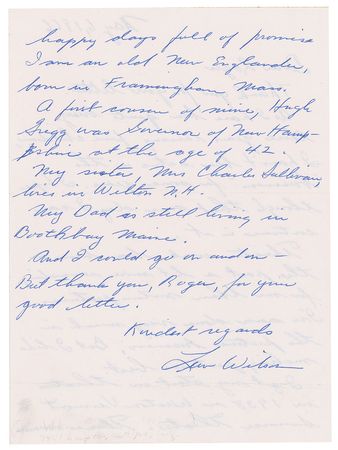 happy days full of promise
I am an old New Englander,
born in Framingham, Mass.
A first cousin of mine, Hugh
Gregg was Governor of New Hamp-
shire at the age of 42.
My sister, Mrs Charles Sullivan,
lives in Wilton N.H.
My Dad is still living in
Boothbay Maine.
And I could go on and on —
But thank you, Roger, for your
good letter.
Kindest regards
Wilson